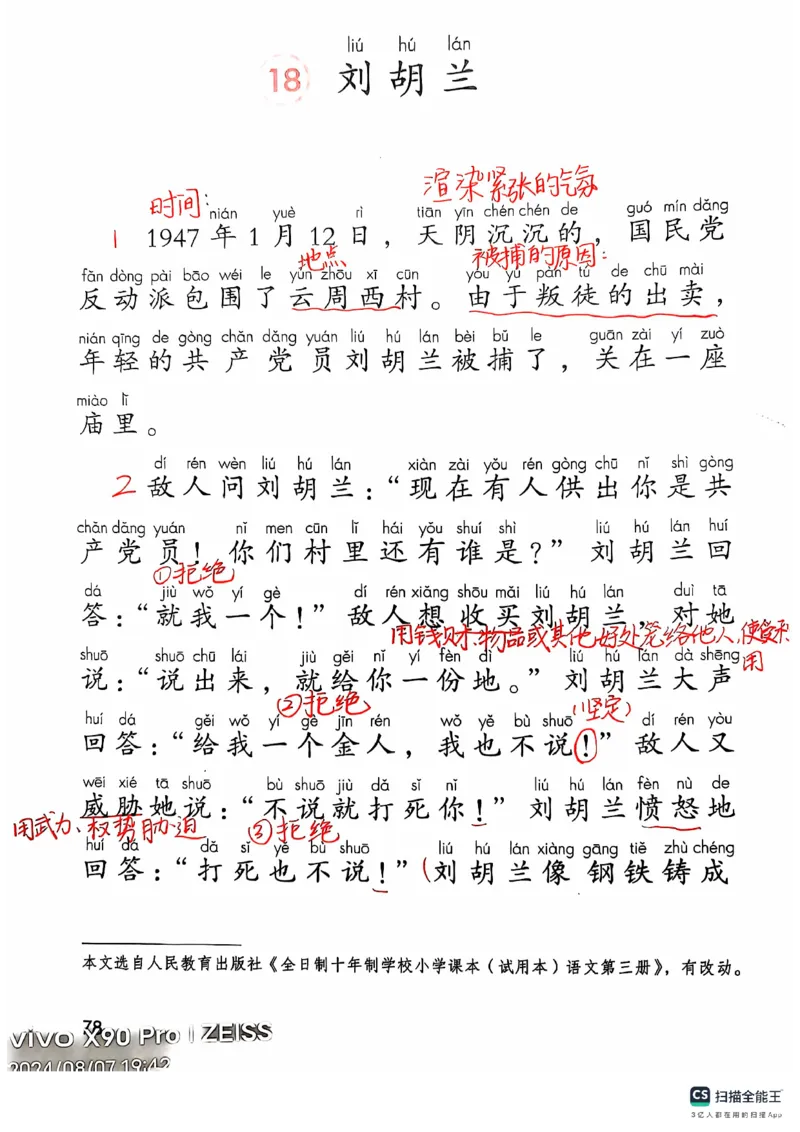 liú hú lán
18 刘胡兰
渲染紧张的气氛
时间：
nián yuè rì tiān yīn chén chén de guó mín dǎng
1 1947年1月12日，天阴沉沉的，国民党
地点 被捕的原因：
fǎn dòng pài bāo wéi le yún zhōu xī cūn yóu yú pàn tú de chū mài
反动派包围了云周西村。由于叛徒的出卖，
nián qīng de gòng chǎn dǎng yuán liú hú lán bèi bǔ le guān zài yí zuò
年轻的共产党员刘胡兰被捕了，关在一座
miào lǐ
庙里。
dí rén wèn liú hú lán xiàn zài yǒu rén gòng chū nǐ shì gòng
2 敌人问刘胡兰：“现在有人供出你是共
chǎn dǎng yuán nǐ men cūn lǐ hái yǒu shuí shì liú hú lán huí
产党员！你们村里还有谁是？”刘胡兰回
①拒绝
dá jiù wǒ yí gè dí rén xiǎng shōu mǎi liú hú lán duì tā
答：“就我一个！”敌人想收买刘胡兰，对她
用钱财物品或其他好处笼络他人，使受利用
shuō shuō chū lái jiù gěi nǐ yí fèn dì liú hú lán dà shēng
说：“说出来，就给你一份地。”刘胡兰大声
②拒绝 （坚定）
huí dá gěi wǒ yí gè jīn rén wǒ yě bù shuō dí rén yòu
回答：“给我一个金人，我也不说！”敌人又
wēi xié tā shuō bù shuō jiù dǎ sǐ nǐ liú hú lán fèn nù de
威胁她说：“不说就打死你！”刘胡兰愤怒地
用武力、权势胁迫 ③拒绝
huí dá dǎ sǐ yě bù shuō liú hú lán xiàng gāng tiě zhù chéng
回答：“打死也不说！”（刘胡兰像钢铁铸成
本文选自人民教育出版社《全日制十年制学校小学课本（试用本）语文第三册》，有改动。
78
vivo X90 Pro | ZEISS
2024/08/07 19:42
CS 扫描全能王
3亿人都在用的扫描App